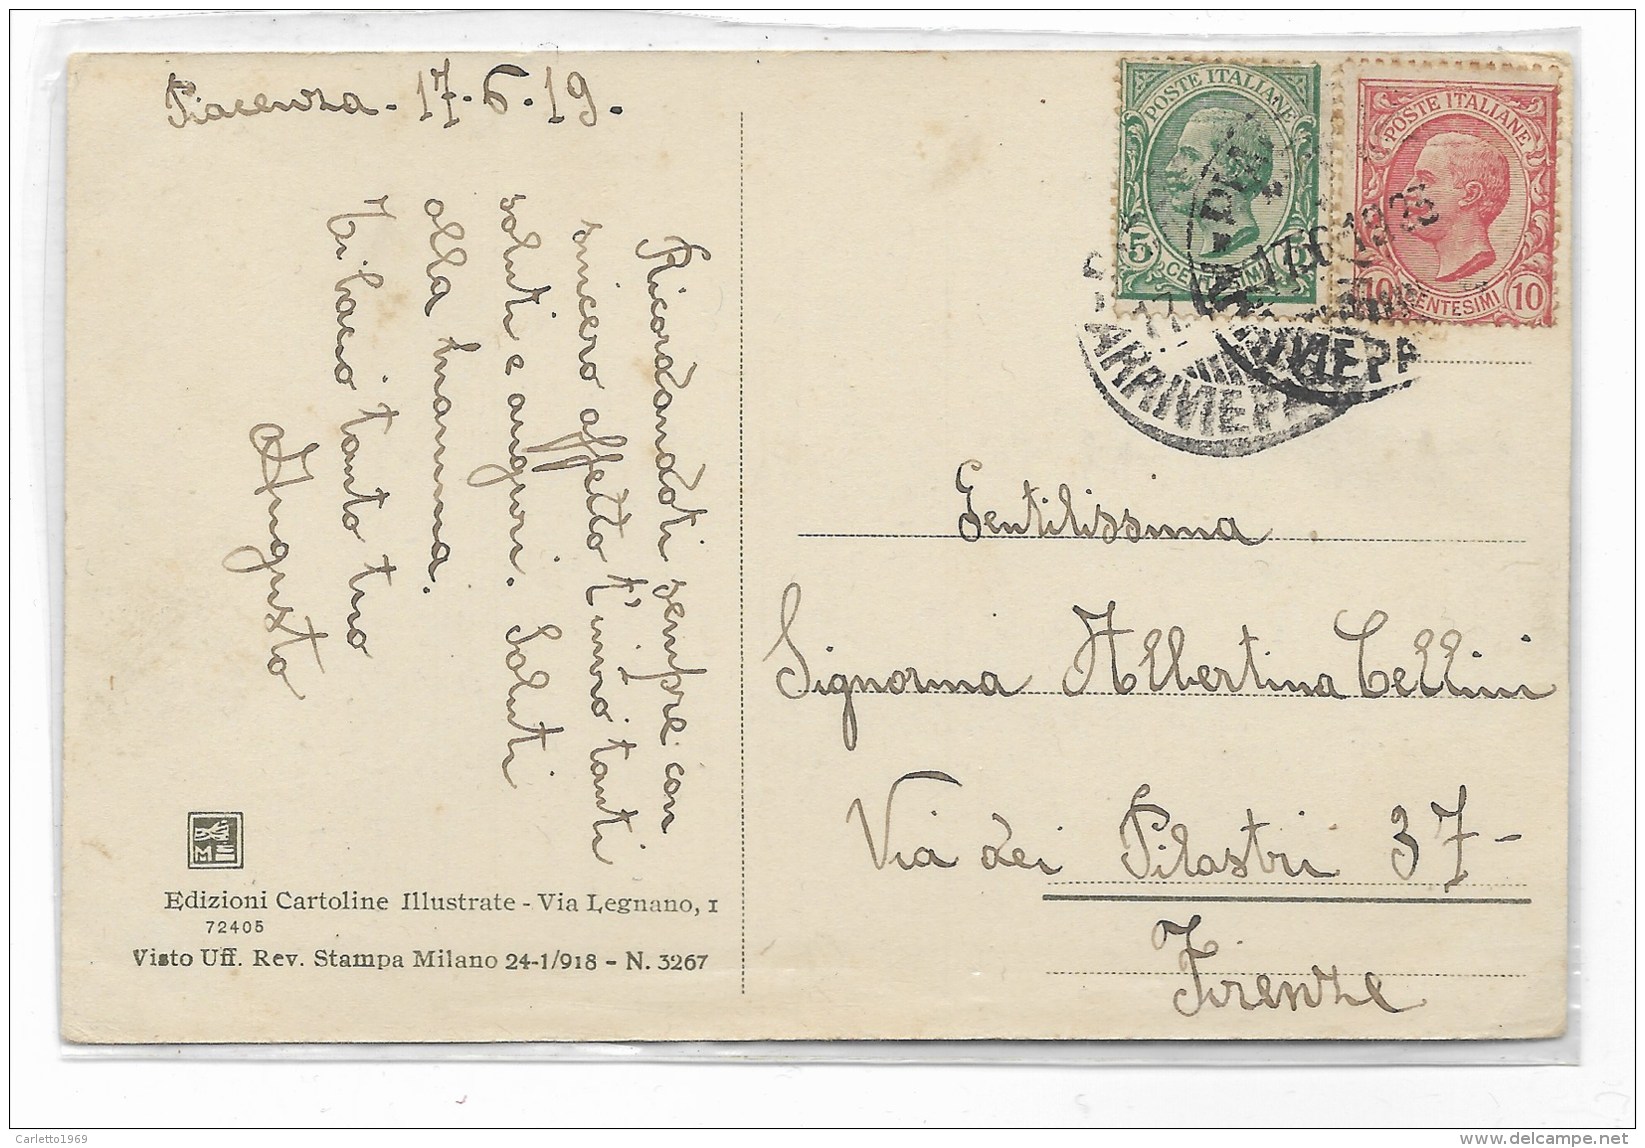 Piacenza - 17 - 6 - 19.
Ricordandoti sempre con
sincero affetto t'invio tanti
saluti e auguri. Saluti
alla mamma.
Ti bacio tanto tuo
Augusto
POSTE ITALIANE
5 CENTESIMI 5
POSTE ITALIANE
10 CENTESIMI 10
Gentilissima
Signorina Albertina Cellini
Via dei Pilastri 37 -
Firenze
Edizioni Cartoline Illustrate - Via Legnano, 1
72405
Visto Uff. Rev. Stampa Milano 24-1/918 - N. 3267
Carletto1969
www.delcampe.net